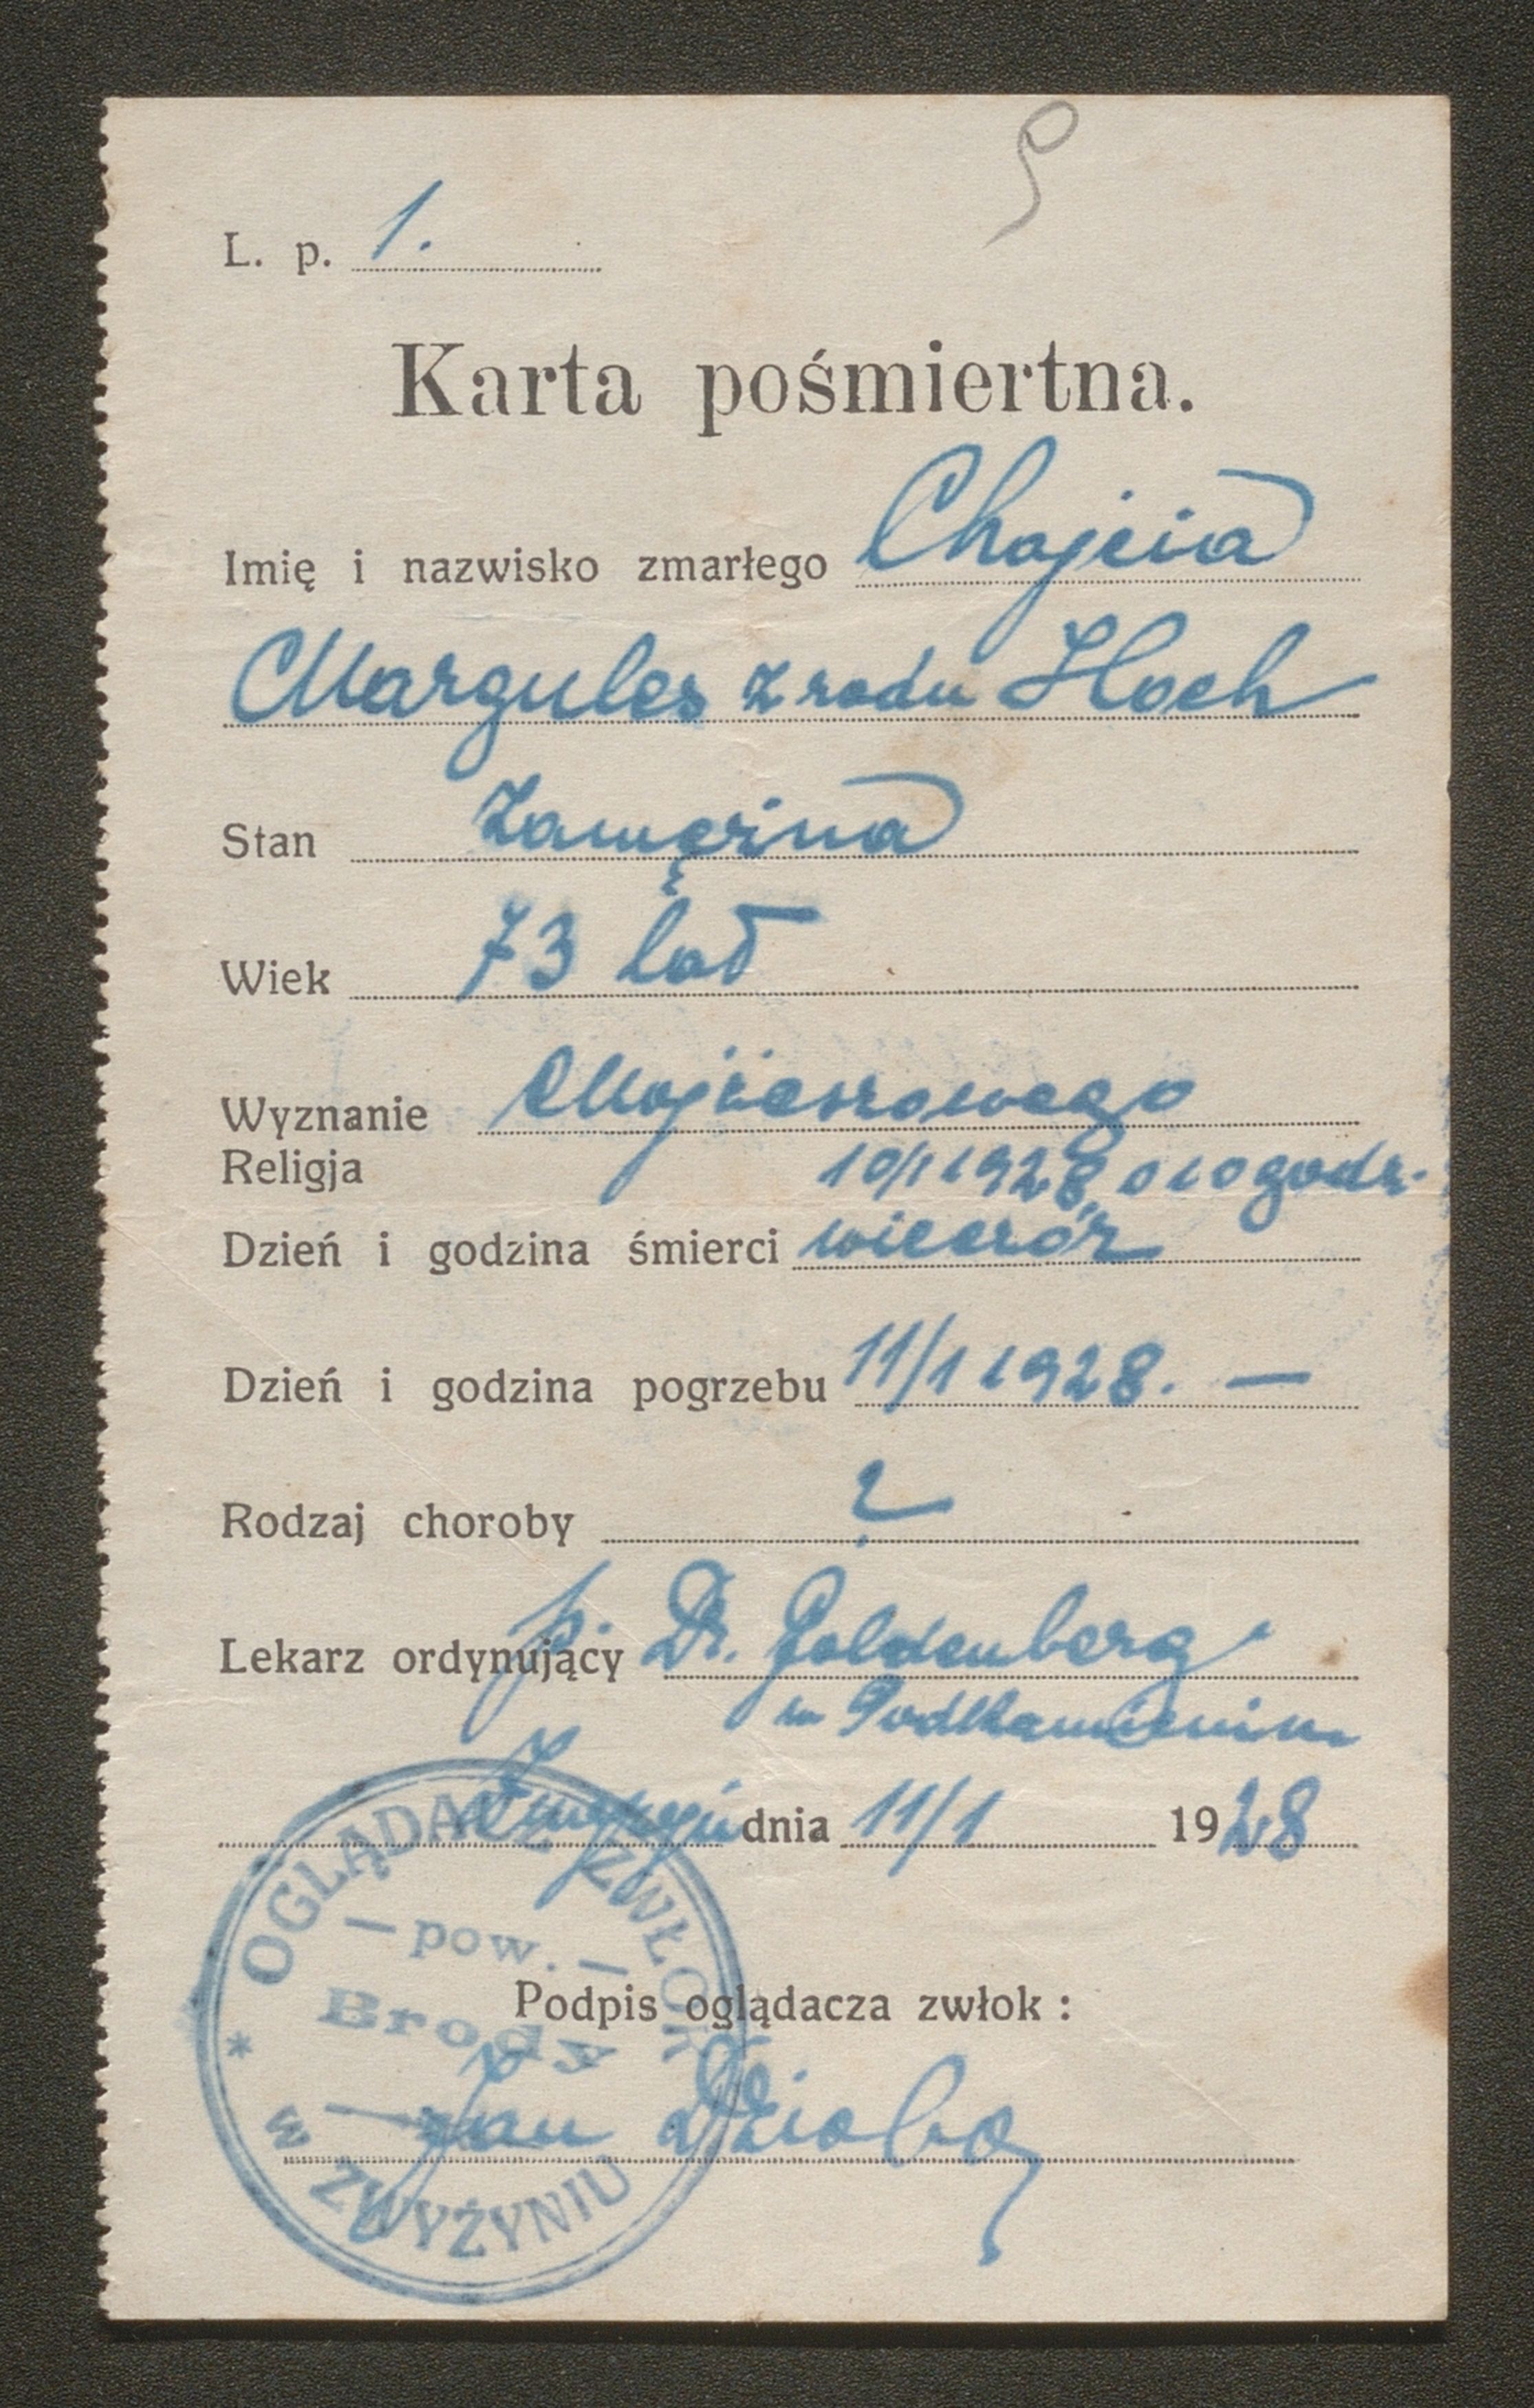 9
L. p. 1.
Karta pośmiertna.
Imię i nazwisko zmarłego Chajcia
Margules z rodu Hoch
Stan Zamężna
Wiek 73 lat
Wyznanie Mojżeszowego
Religja
10/1 1928, o 10 godz.
Dzień i godzina śmierci wieczór
Dzień i godzina pogrzebu 11/1 1928. —
Rodzaj choroby ?
Lekarz ordynujący p. Dr. Goldenberg
w Podkamieniu
dnia 11/1 1928
OGLĄDACZ ZWŁOK
— pow. —
Brody
* w ZWYŻYNIU
Podpis oglądacza zwłok :
Jan Dzioba